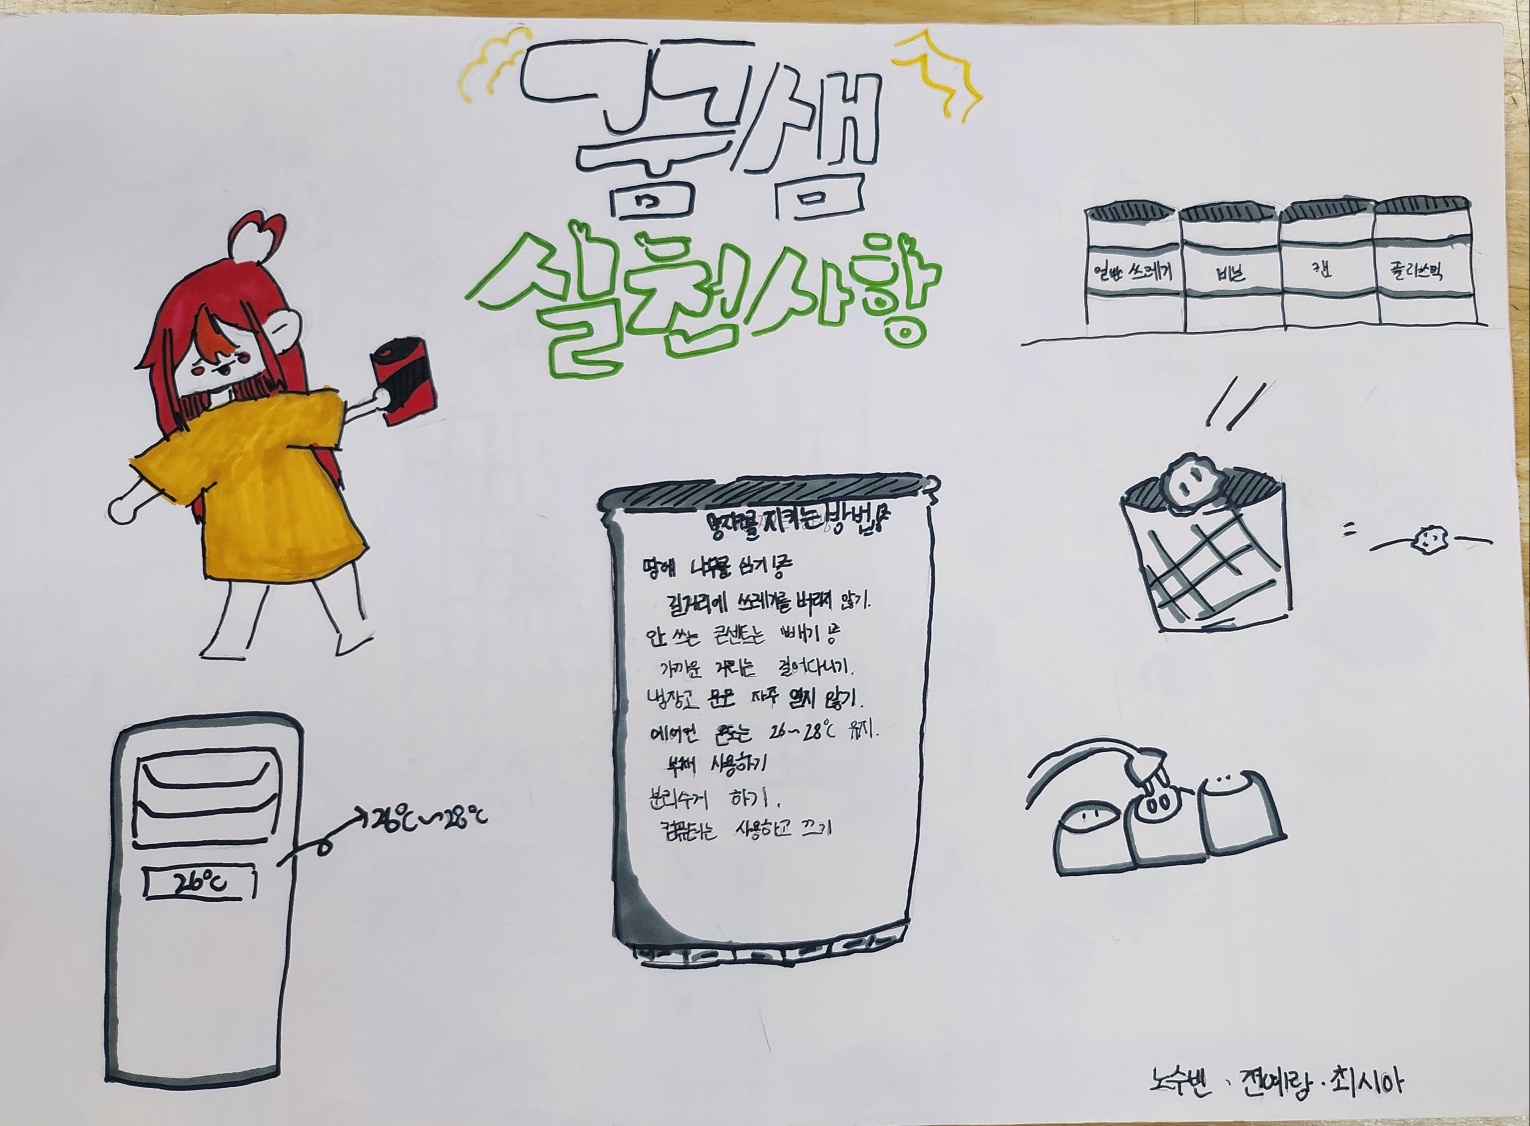 꿈샘
실천사항
일반 쓰레기
비닐
캔
플라스틱
지키는 방법
땅에 나무를 심기
길거리에 쓰레기를 버리지 않기.
안 쓰는 콘센트는 빼기
가까운 거리는 걸어다니기.
냉장고 문은 자주 열지 않기.
에어컨 온도는 26~28℃ 유지.
부채 사용하기
분리수거 하기.
컴퓨터는 사용하고 끄기
26℃~28℃
26℃
노수빈 · 전예랑 · 최시아